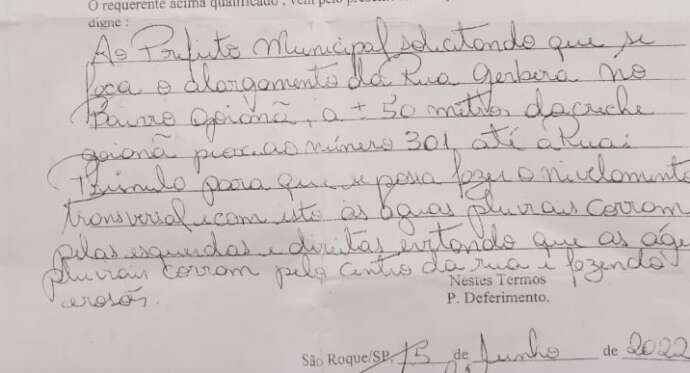 O requerente acima qualificado, vem pelo
digne :
Ao Prefeito Municipal solicitando que se
faça o alargamento da Rua Gerbera no
Bairro Goianã, a ± 50 metros da creche
goianã prox. ao número 301, até a Rua:
para que se possa fazer o nivelamento
transversal e com isto as águas pluviais corram
pelas esquerdas e direitas evitando que as ág
pluviais corram pelo centro da rua e fazendo
erosão.
Nestes Termos
P. Deferimento.
São Roque/SP, 15 de Junho de 2022